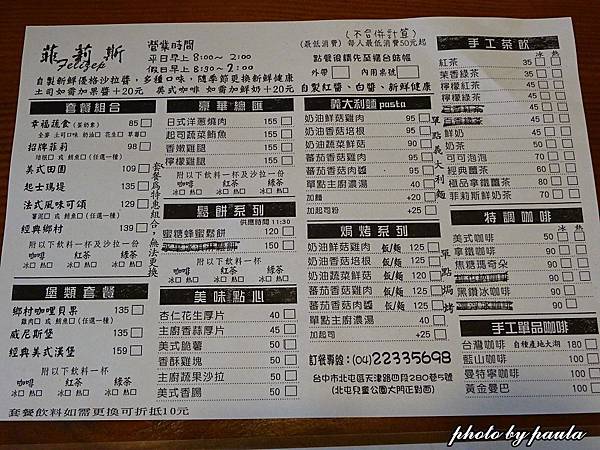 菲莉斯
Felizep
營業時間
平日早上8:00～2:00
假日早上8:30～2:00
(不合併計算)
(最低消費) 每人最低消費50元起
點餐後請先至櫃台結帳
外帶 內用桌號
自製新鮮優格沙拉醬，多種口味，隨季節更換新鮮健康
土司如需加果醬+20元 美式咖啡 如需加鮮奶+20元
自製紅醬、白醬、新鮮健康
套餐組合
幸福蔬食(蛋奶素) 85
全麥 土司口味 奶油 花生 草莓
招牌菲莉 98
培根 或 鮪魚 (任選一種)
美式田園 109
起士瑪堤 131
法式風味可頌 129
薯泥 或 鮪魚 (任選一種)
經典鄉村 139
附以下飲料一杯及沙拉一份
咖啡 紅茶 綠茶
冰 熱 冰 熱 冰 熱
套餐為特惠組合，無法更換
堡類套餐
鄉村咖哩貝果 135
雞肉 或 鮪魚 (任選一種)
威尼斯堡 135
經典美式漢堡 159
附以下飲料一杯
咖啡 紅茶 綠茶
冰 熱 冰 熱 冰 熱
套餐飲料如需更換可折抵10元
豪華總匯
日式洋蔥燒肉 155
起司蔬菜鮪魚 155
香嫩雞腿 155
檸檬雞腿 155
附以下飲料一杯及沙拉一份
咖啡 紅茶 綠茶
冰 熱 冰 熱 冰 熱
鬆餅系列
供應時間 11:30
蜜糖蜂蜜鬆餅 120
150
美味點心
杏仁花生厚片 40
主廚香蒜厚片 50
美式脆薯 50
香酥雞塊 50
主廚蔬果沙拉 50
美式香腸 50
義大利麵 pasta
奶油鮮菇雞肉
奶油香菇培根
奶油蔬菜鮮菇
蕃茄香菇雞肉
蕃茄香菇肉醬
單點主廚濃湯 40
加麵 +20
加起司粉 +25
單點義大利麵
焗烤系列
奶油鮮菇雞肉 飯/麵 125
奶油香菇培根 飯/麵 125
奶油蔬菜鮮菇 飯/麵 125
蕃茄香菇雞肉 飯/麵 125
蕃茄香菇肉醬 飯/麵 125
單點主廚濃湯 40
加起司 +25
單點焗烤
訂餐專線:(04)22335698
台中市北屯區天津路四段280巷5號
(北屯兒童公園大門正對面)
手工茶飲
冰 熱
紅茶 35
茉香綠茶 35
檸檬紅茶 45
檸檬綠茶 45
45
45
鮮奶 45
奶茶 50
可可泡泡 50
經典薑茶 50
極品拿鐵薑茶 60
菲莉斯鮮奶茶 60
特調咖啡
冰 熱
美式咖啡
拿鐵咖啡
焦糖瑪奇朵
黑鑽冰咖啡
手工單品咖啡
台灣咖啡 自種產地大湖 180
藍山咖啡 100
曼特寧咖啡 100
黃金曼巴 100
photo by paula